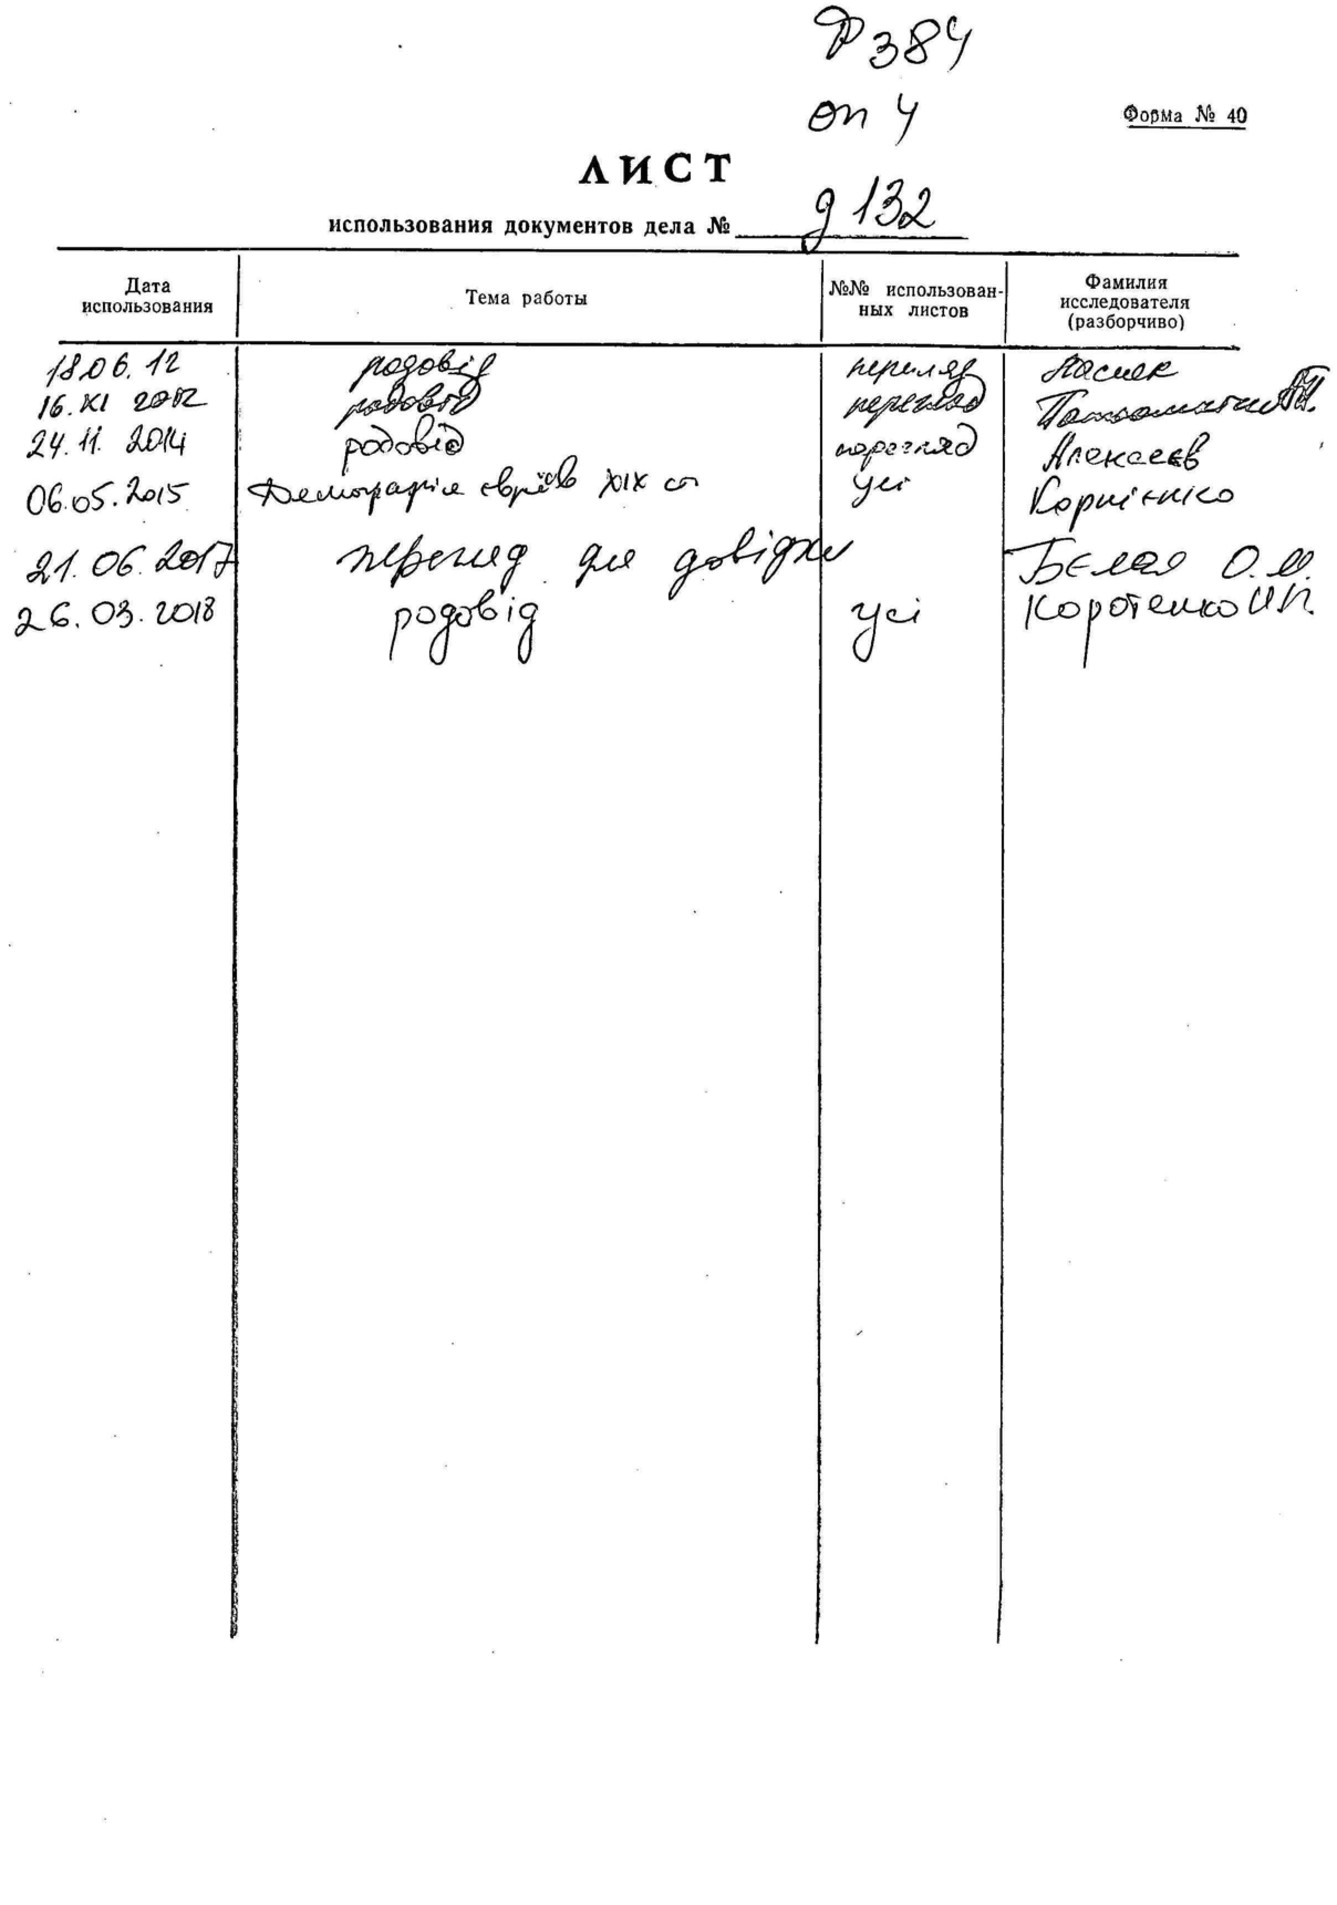 Ф 384
оп 4
Форма № 40
ЛИСТ
использования документов дела № д 132
Дата использования
Тема работы
№№ использован-ных листов
Фамилия исследователя (разборчиво)
18.06.12 родовід перегляд
16.XI 2012 родовід перегляд
24.11.2014 родовід перегляд Алексеєв
06.05.2015 Демографія євреїв XIX ст усі Корнієнко
21.06.2017 перегляд для довідки Бєлая О.М.
26.03.2018 родовід усі Коротенко И.П.